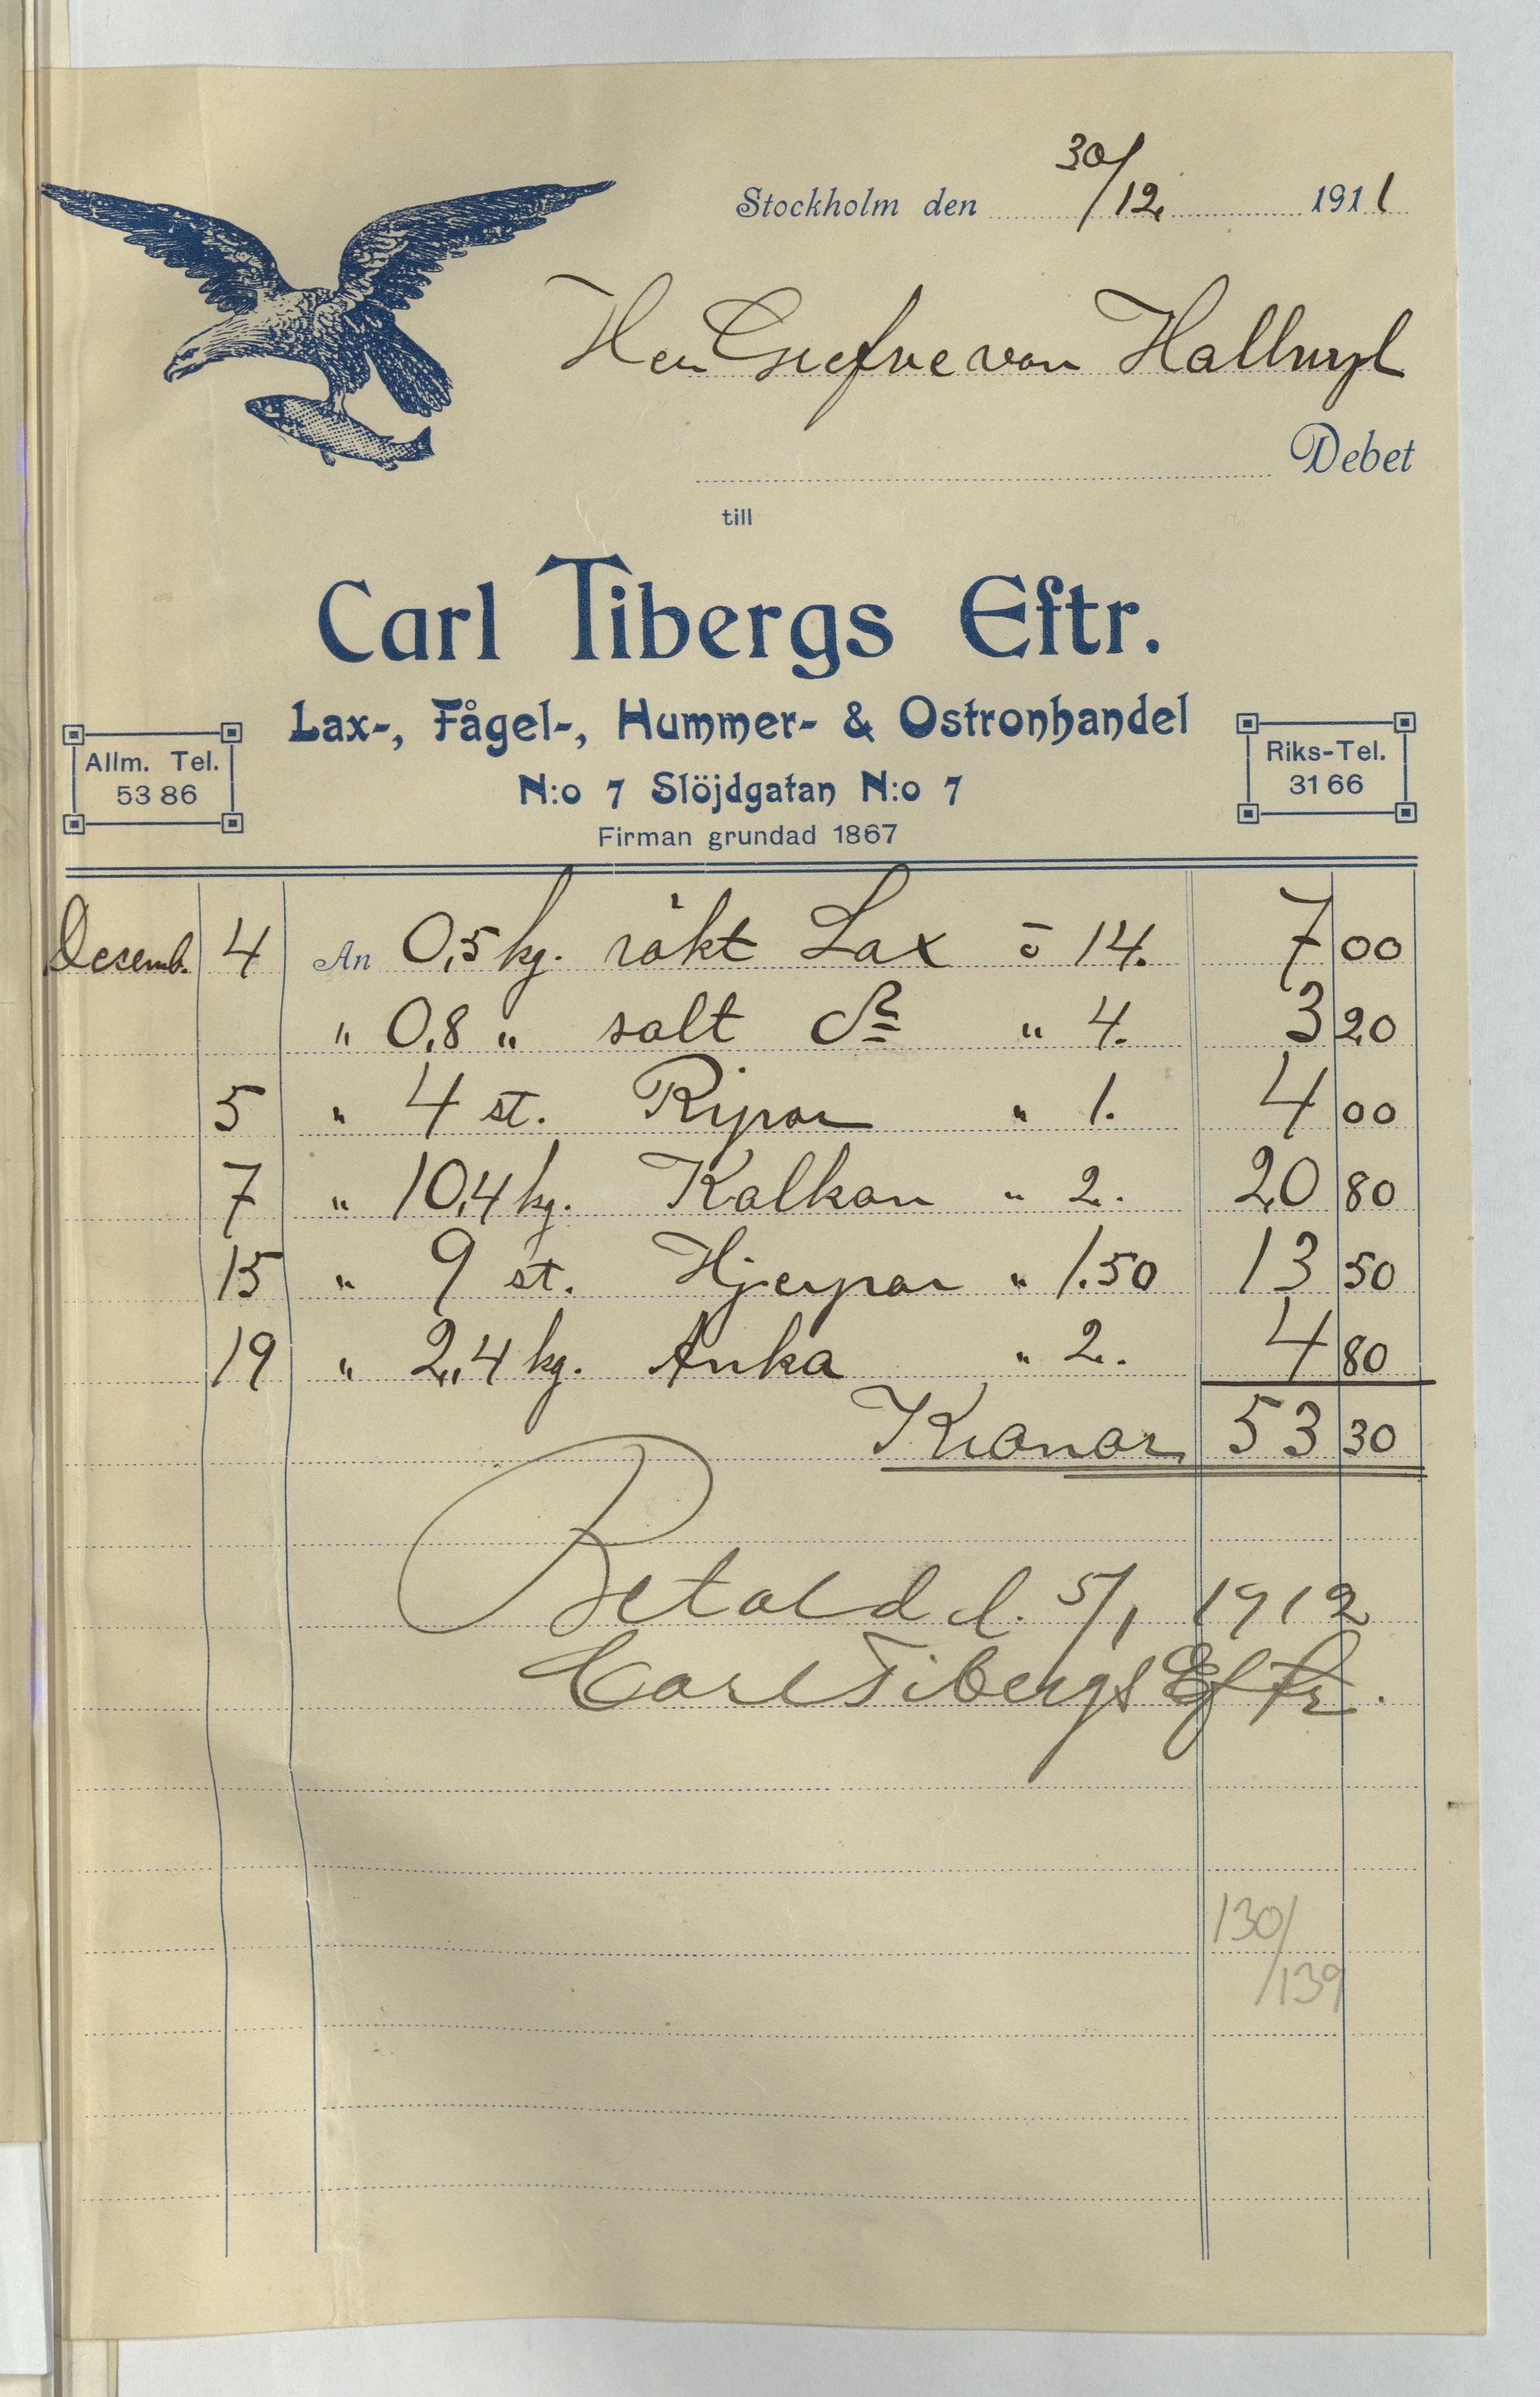 Stockholm den 30/12. 1911
Herr Grefve von Hallwyl
Debet
till
Carl Tibergs Eftr.
Lax-, Fågel-, Hummer- & Ostronhandel
Allm. Tel.
53 86
N:o 7 Slöjdgatan N:o 7
Riks-Tel.
31 66
Firman grundad 1867
Desemb. 4 An 0,5 kg. rökt Lax à 14. 7 00
" 0,8 " salt Do " 4. 3 20
5 " 4 st. Ripor " 1. 4 00
7 " 10,4 kg. Kalkon " 2. 20 80
15 " 9 st. Hjerpar " 1.50 13 50
19 " 2,4 kg. Anka " 2. 4 80
Kronor 53 30
Betald d. 5/1 1912
Carl Tibergs Eftr.
130/
/139